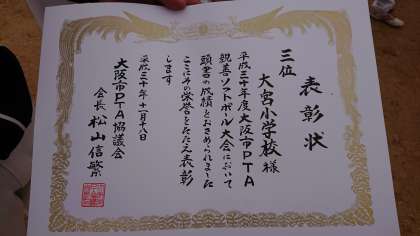 表彰状
三位
大宮小学校様
平成三十年度大阪市PTA
親善ソフトボール大会において
頭書の成績をおさめられました
ここにその栄誉をたたえ表彰
します
平成三十年十一月十八日
大阪市PTA協議会
会長 松山信繁